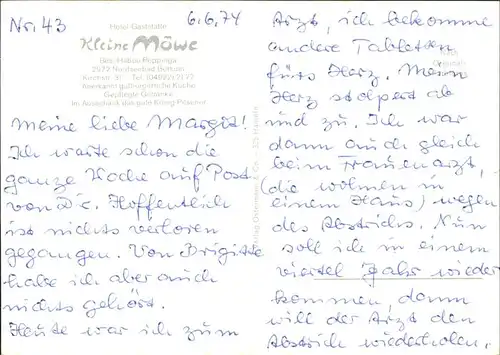 Nr. 43
6.6.74
Hotel Gaststätte
Kleine Möwe
2972 Nordseebad Borkum
Anerkannt gutbürgerliche Küche
Gepflegte Getränke
Im Ausschank das gute König Pilsener
Meine liebe Margit!
Ich warte schon die
ganze Woche auf Post
von Dir. Hoffentlich
ist nichts verloren
gegangen. Von Brigitte
habe ich aber auch
nichts gehört.
Heute war ich zum
Arzt, ich bekomme
andere Tabletten
fürs Herz. Mein
Herz stolpert ab
und zu. Ich war
dann auch gleich
beim Frauenarzt,
(die wohnen in
einem Haus) wegen
des Abstrichs. Nun
soll ich in einem
viertel Jahr wieder
kommen, dann
will der Arzt den
Abstrich wiederholen.